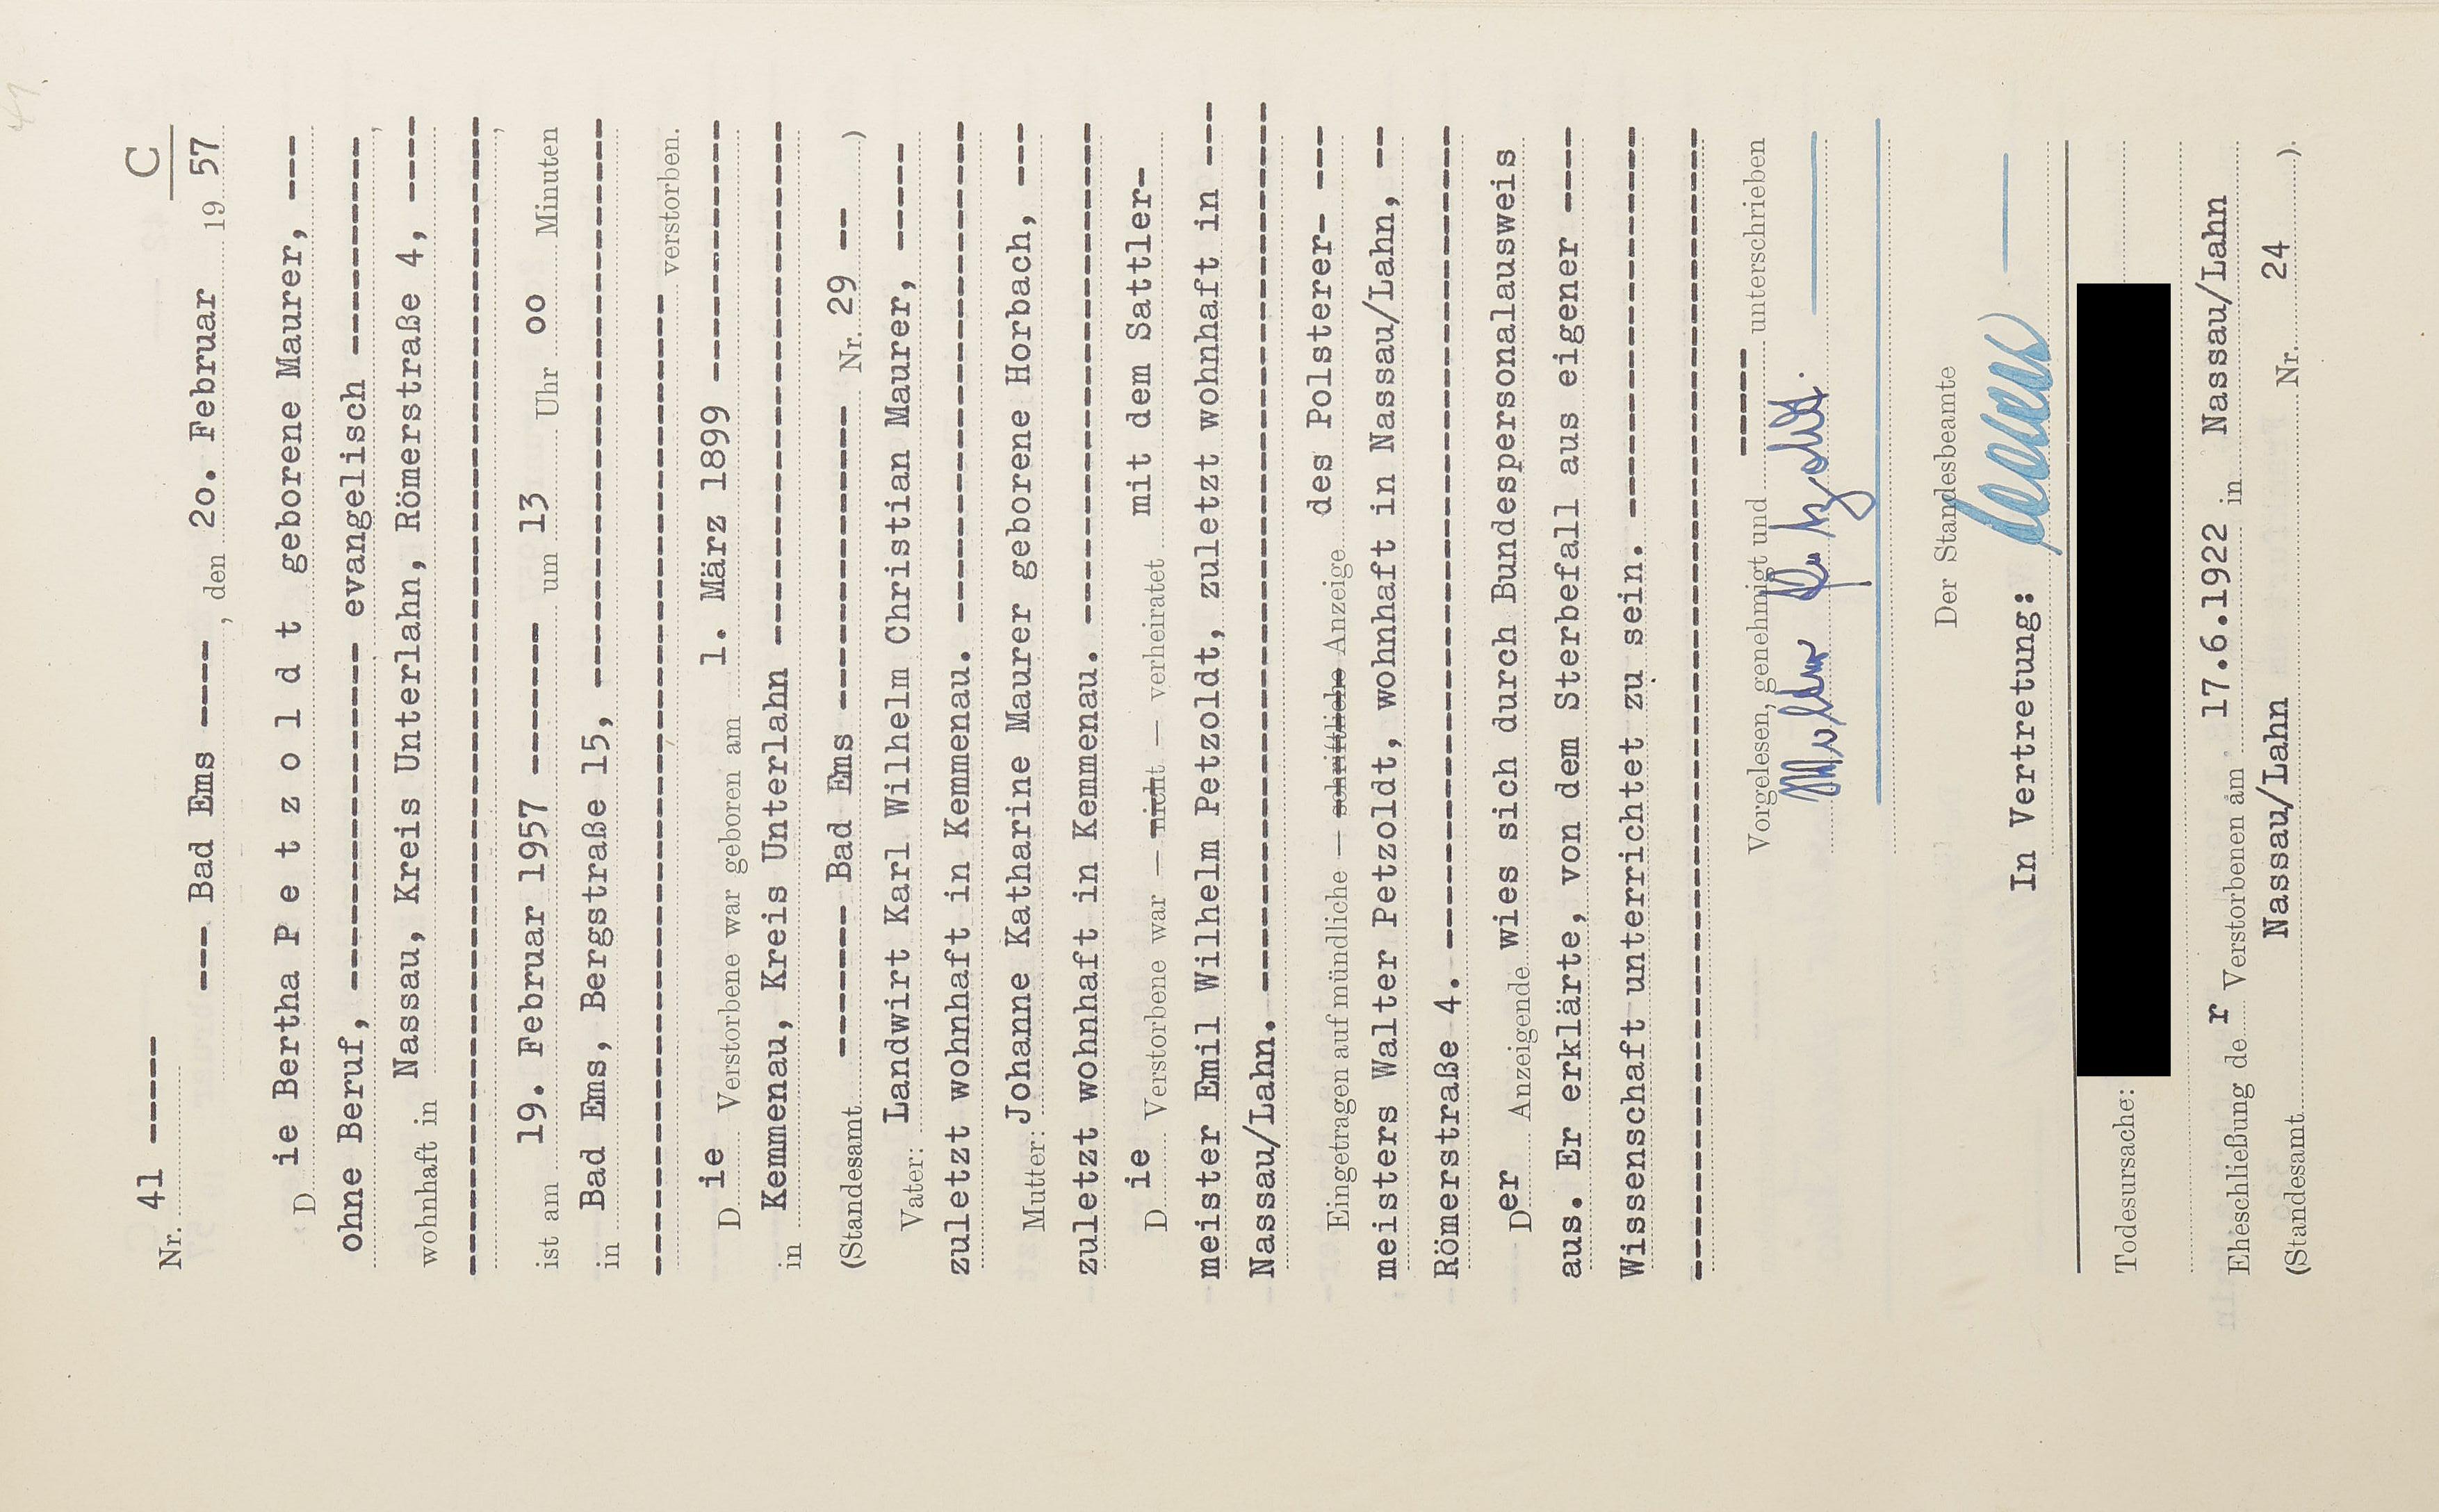 C
Nr. 41 -----
--- Bad Ems ----, den 2o. Februar 19 57
Die Bertha P e t z o l d t geborene Maurer, ---
ohne Beruf, ---------------- evangelisch ----------,
wohnhaft in Nassau, Kreis Unterlahn, Römerstraße 4, ----
-------------------------------------------------------,
ist am 19. Februar 1957 ------- um 13 Uhr oo Minuten
in Bad Ems, Bergstraße 15, ---------------------------
----------------------------------------------- verstorben.
Die Verstorbene war geboren am 1. März 1899 ------------
in Kemmenau, Kreis Unterlahn -------------------------
(Standesamt ------- Bad Ems -------------- Nr. 29 -- )
Vater: Landwirt Karl Wilhelm Christian Maurer, -----
zuletzt wohnhaft in Kemmenau. ------------------------
Mutter: Johanne Katharine Maurer geborene Horbach, ---
zuletzt wohnhaft in Kemmenau. ------------------------
Die Verstorbene war — nicht — verheiratet mit dem Sattler-
meister Emil Wilhelm Petzoldt, zuletzt wohnhaft in ---
Nassau/Lahn. -----------------------------------------
Eingetragen auf mündliche — schriftliche Anzeige des Polsterer- ---
meisters Walter Petzoldt, wohnhaft in Nassau/Lahn, --
Römerstraße 4. ---------------------------------------
Der Anzeigende wies sich durch Bundespersonalausweis
aus. Er erklärte, von dem Sterbefall aus eigener ----
Wissenschaft unterrichtet zu sein. -------------------
-------------------------------------------------------
Vorgelesen, genehmigt und ----- unterschrieben
Walter Petzoldt.
Der Standesbeamte
In Vertretung:
Todesursache:
Eheschließung der Verstorbenen am 17.6.1922 in Nassau/Lahn
(Standesamt Nassau/Lahn Nr. 24 ).